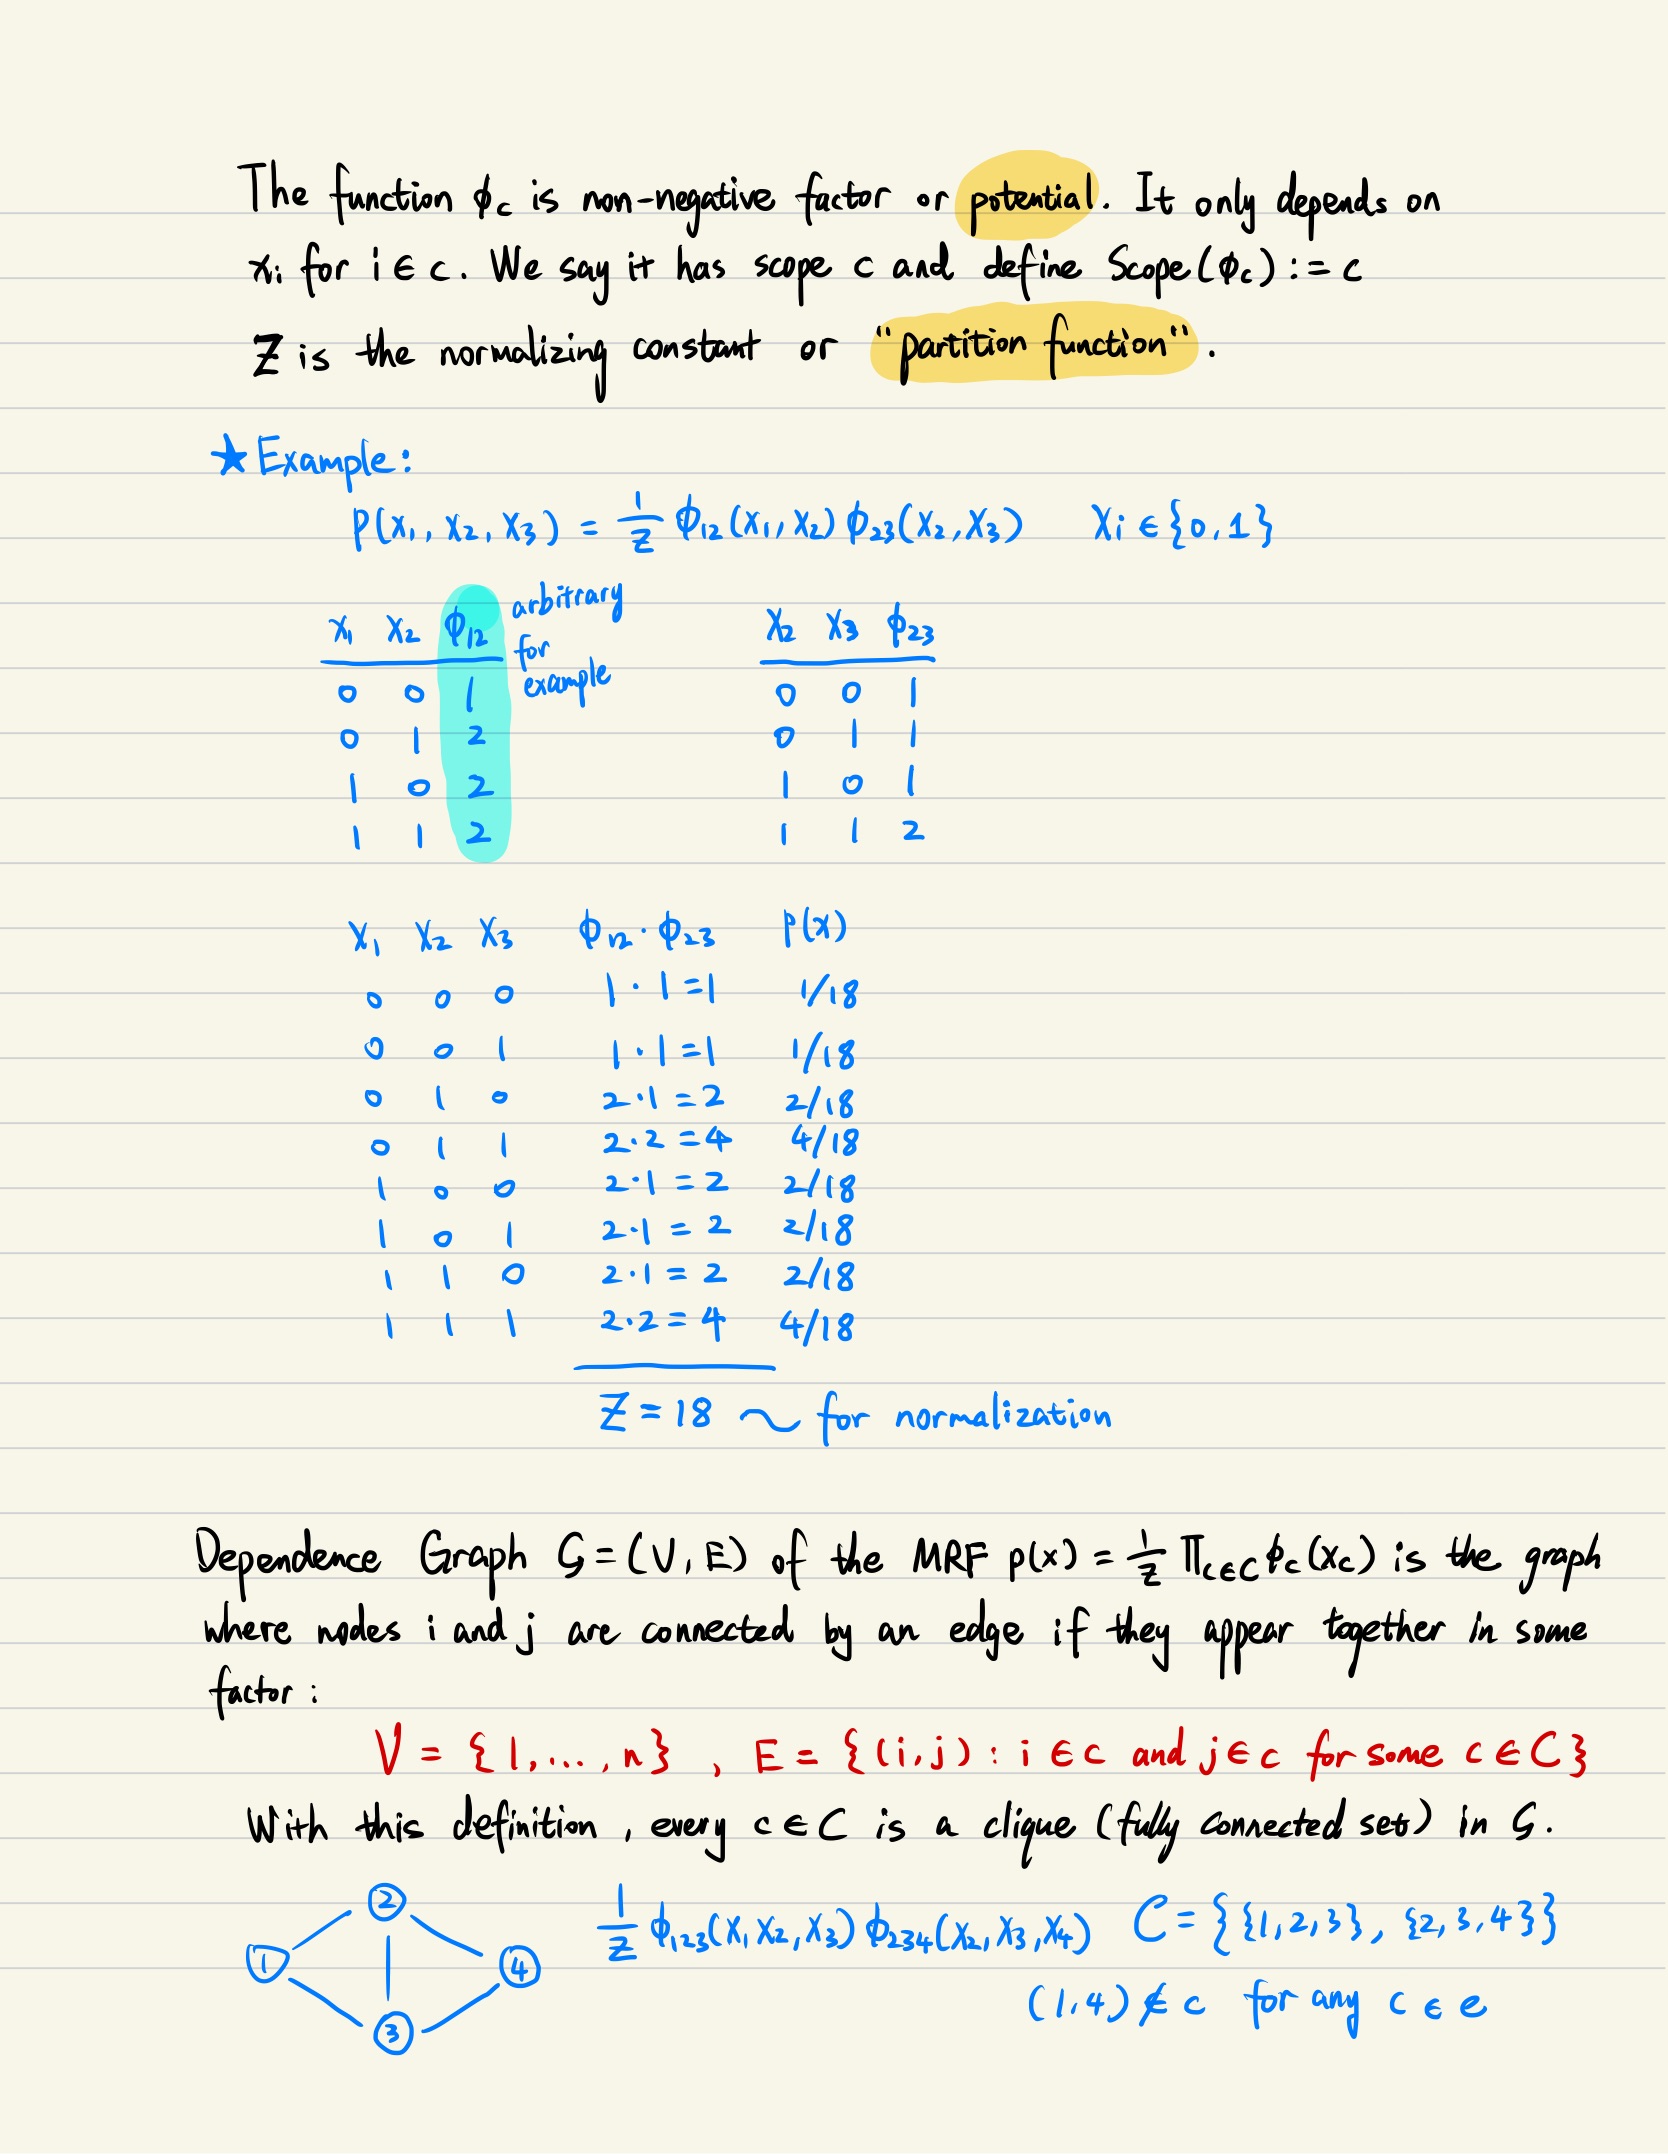 The function ϕc is non-negative factor or potential. It only depends on
xi for i ∈ c. We say it has scope c and define Scope(ϕc) := c
Z is the normalizing constant or "partition function".
★ Example:
P(x1, x2, x3) = 1/Z ϕ12(x1, x2) ϕ23(x2, x3) xi ∈ {0, 1}
x1 x2 ϕ12 arbitrary for example
0 0 1
0 1 2
1 0 2
1 1 2
x2 x3 ϕ23
0 0 1
0 1 1
1 0 1
1 1 2
x1 x2 x3 ϕ12 · ϕ23 P(x)
0 0 0 1 · 1 = 1 1/18
0 0 1 1 · 1 = 1 1/18
0 1 0 2 · 1 = 2 2/18
0 1 1 2 · 2 = 4 4/18
1 0 0 2 · 1 = 2 2/18
1 0 1 2 · 1 = 2 2/18
1 1 0 2 · 1 = 2 2/18
1 1 1 2 · 2 = 4 4/18
Z = 18 ~ for normalization
Dependence Graph G = (V, E) of the MRF p(x) = 1/Z ∏c∈C ϕc(xc) is the graph
where nodes i and j are connected by an edge if they appear together in some
factor:
V = {1, ..., n} , E = {(i, j) : i ∈ c and j ∈ c for some c ∈ C}
With this definition, every c ∈ C is a clique (fully connected set) in G.
1/Z ϕ123(x1 x2, x3) ϕ234(x2, x3, x4) C = {{1, 2, 3}, {2, 3, 4}}
(1, 4) ∉ c for any c ∈ e
1 2 3 4